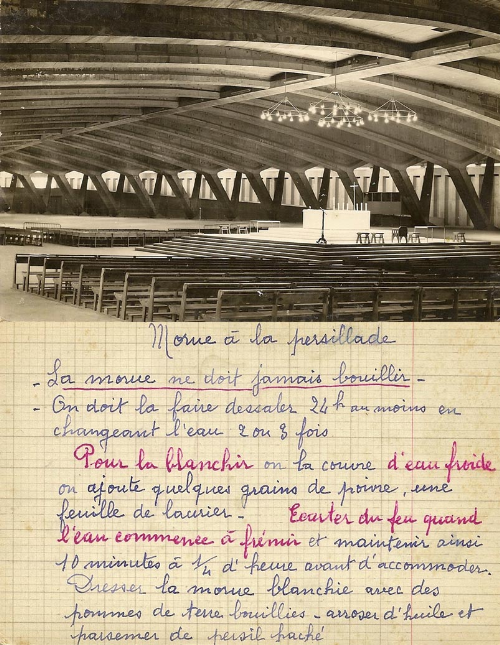 Morue à la persillade
- La morue ne doit jamais bouillir -
- On doit la faire dessaler 24h au moins en
changeant l'eau 2 ou 3 fois
Pour la blanchir on la couvre d'eau froide
on ajoute quelques grains de poivre, une
feuille de laurier - Ecarter du feu quand
l'eau commence à frémir et maintenir ainsi
10 minutes à 1/4 d'heure avant d'accommoder.
Dresser la morue blanchie avec des
pommes de terre bouillies - arroser d'huile et
parsemer de persil haché